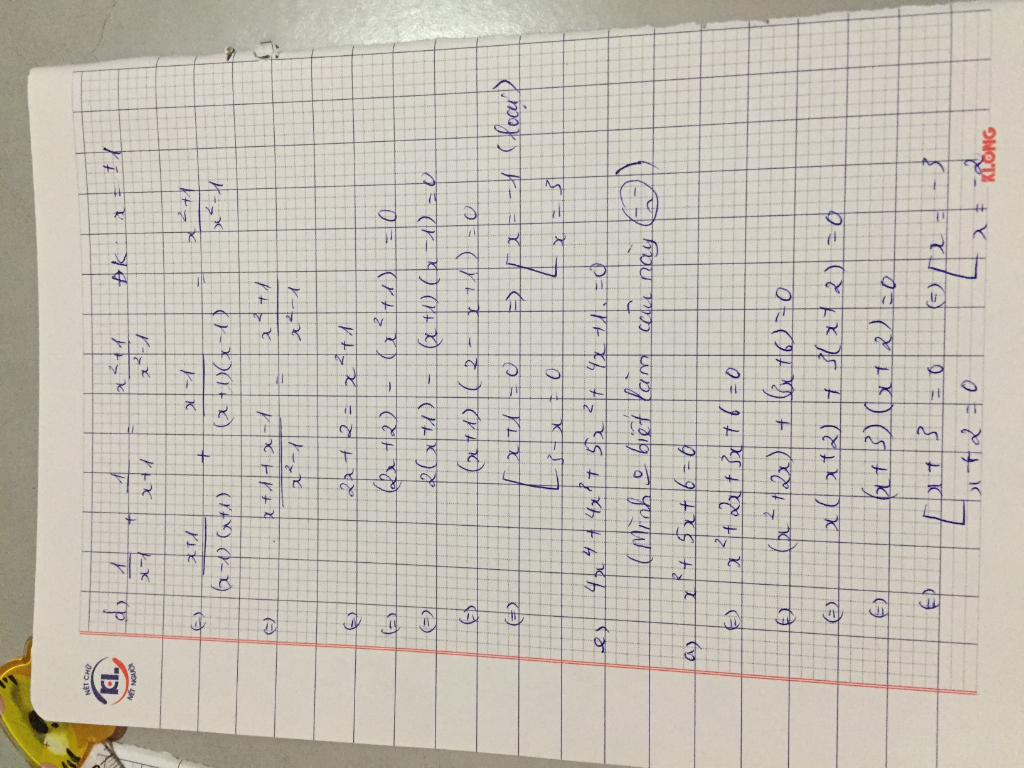 NÉT CHỮ
KL
NẾT NGƯỜI
d) 1/(x-1) + 1/(x+1) = (x²+1)/(x²-1) ĐK: x = ±1
(=) (x+1)/((x-1)(x+1)) + (x-1)/((x+1)(x-1)) = (x²+1)/(x²-1)
(=) (x+1+x-1)/(x²-1) = (x²+1)/(x²-1)
(=) 2x+2 = x²+1
(=) (2x+2) - (x²+1) = 0
(=) 2(x+1) - (x+1)(x-1) = 0
(=) (x+1)(2-x+1) = 0
(=) [x+1=0 => [x=-1 (loại)
[3-x=0 [x=3
e) 4x⁴+4x³+5x²+4x+1=0
(Mình o biết làm câu này )
a) x²+5x+6=0
(=) x²+2x+3x+6=0
(=) (x²+2x) + (3x+6)=0
(=) x(x+2) + 3(x+2)=0
(=) (x+3)(x+2)=0
(=) [x+3=0 (=) [x=-3
[x+2=0 [x=-2
KLONG